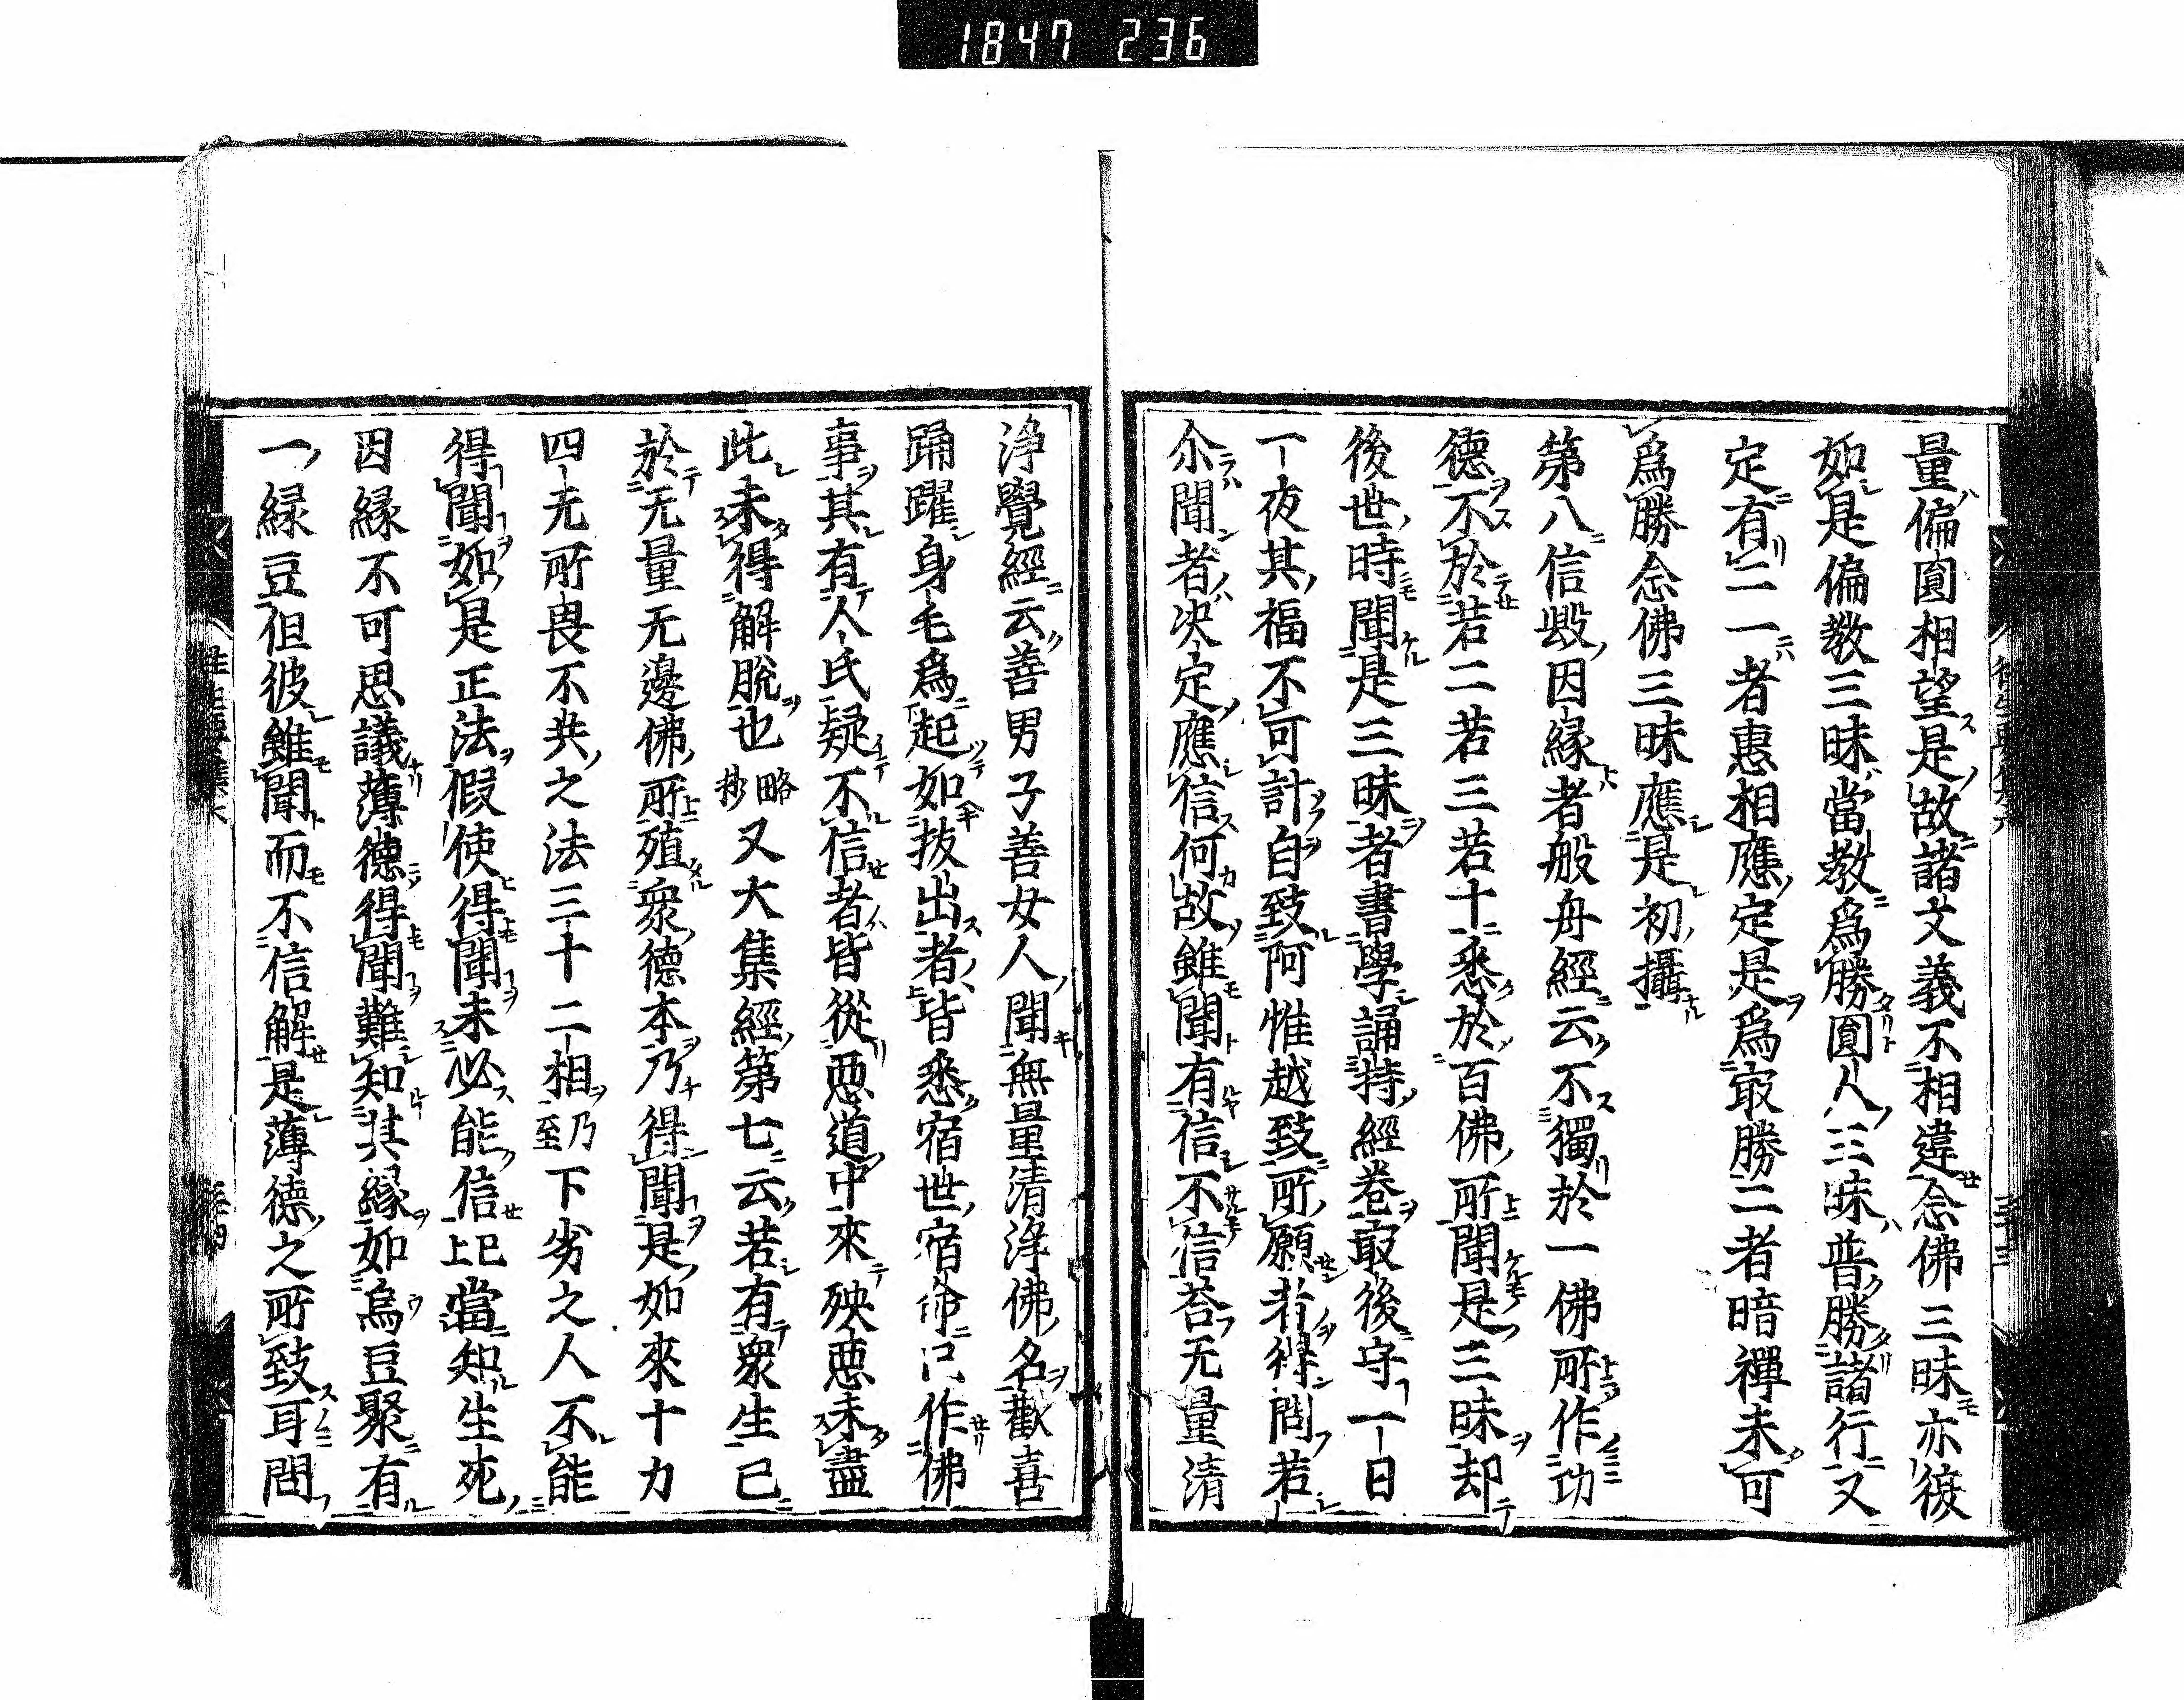 1847 236
量偏圓相望是故諸文義不相違念佛三昧亦復
如是偏教三昧當教爲勝圓人三昧普勝諸行又
定有二一者惠相應定是爲㝡勝二者暗禪未可
爲勝念佛三昧應是初攝
第八信毀因縁者般舟經云不獨於一佛所作功
德不於若二若三若十悉於百佛所聞是三昧却
後世時聞是三昧者書學誦持經卷㝡後守一日
一夜其福不可計自致阿惟越致所願者得問若
尒聞者决定應信何故雖聞有信不信荅无量清
浄覺經云善男子善女人聞無量清浄佛名歡喜
踊躍身毛爲起如抜出者皆悉宿世宿命已作佛
事其有人民疑不信者皆從惡道中來殃惡未盡
此未得解脱也略抄又大集經第七云若有衆生已
於无量无邊佛所殖衆德本乃得聞是如來十力
四无所畏不共之法三十二相乃至下劣之人不能
得聞如是正法假使得聞未必能信已上當知生死
因縁不可思議薄德得聞難知其縁如烏豆聚有
一緑豆但彼雖聞而不信解是薄德之所致耳問